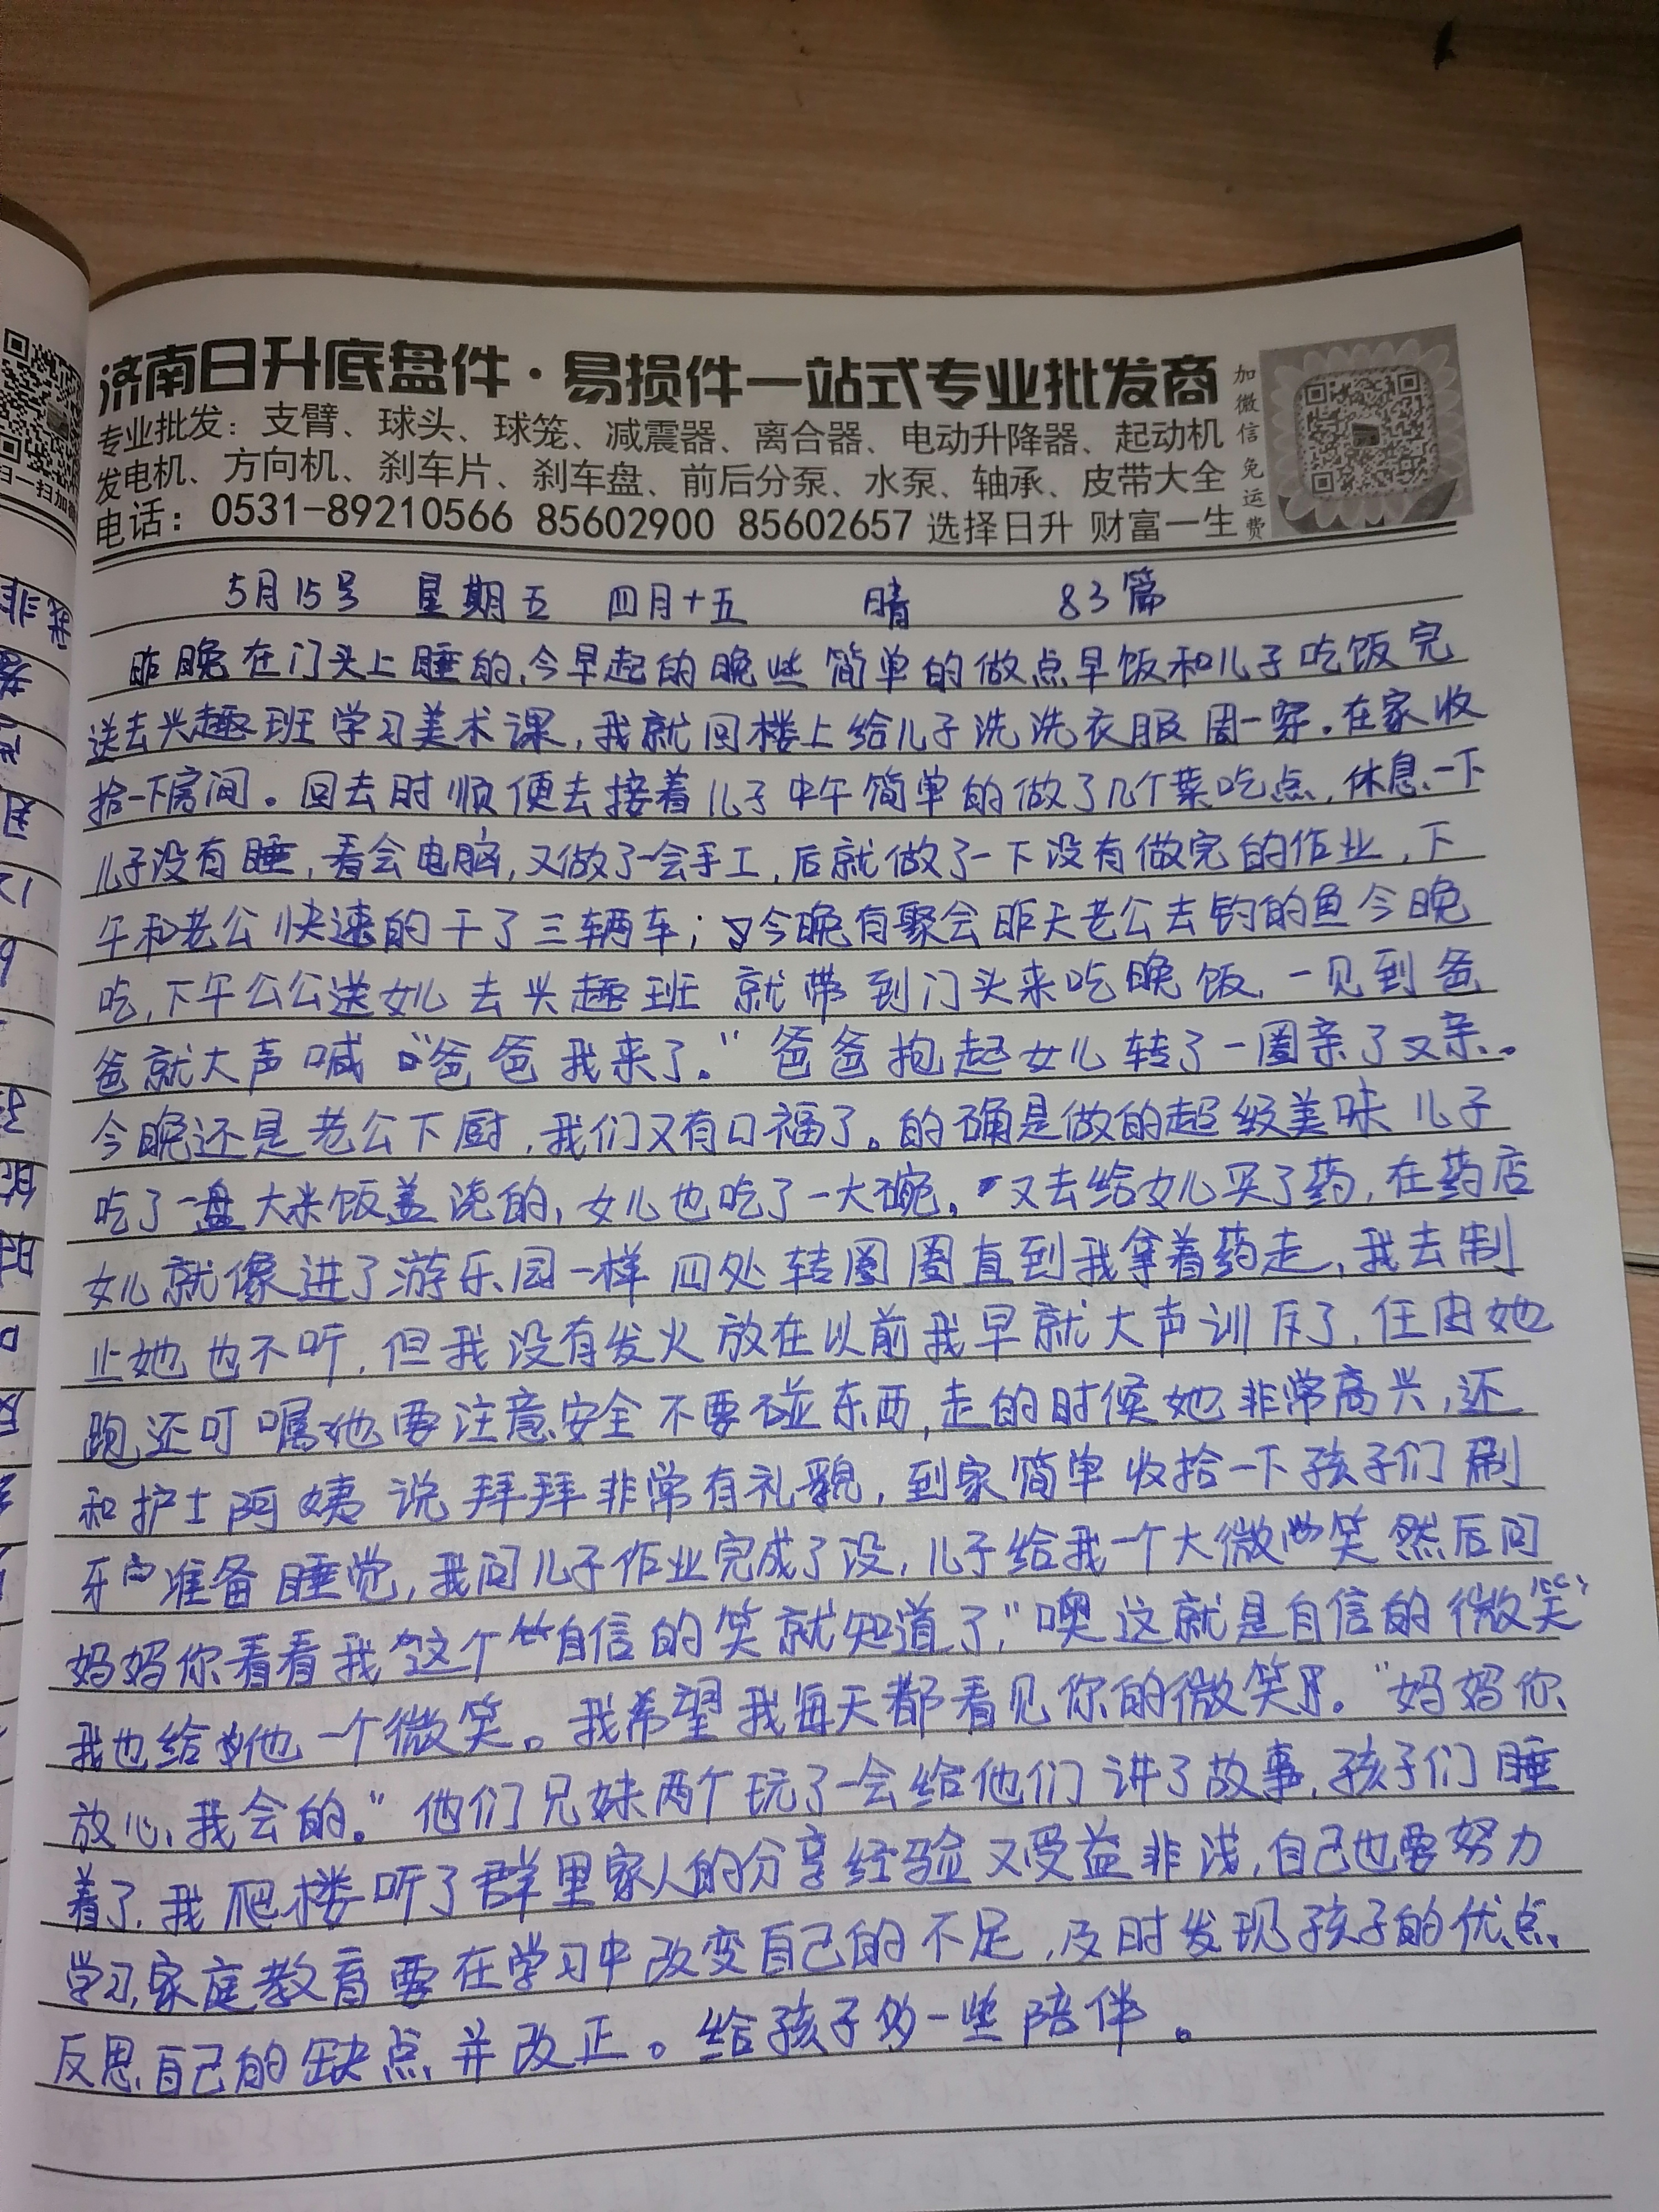 济南日升底盘件·易损件一站式专业批发商
专业批发：支臂、球头、球笼、减震器、离合器、电动升降器、起动机
发电机、方向机、刹车片、刹车盘、前后分泵、水泵、轴承、皮带大全
电话：0531-89210566 85602900 85602657 选择日升 财富一生
加微信免运费
扫一扫加
5月15号 星期五 四月十五 晴 83篇
昨晚在门头上睡的,今早起的晚些 简单的做点早饭和儿子吃饭完
送去兴趣班学习美术课,我就回楼上给儿子洗洗衣服周一穿。在家收
拾一下房间。回去时顺便去接着儿子中午简单的做了几个菜吃点,休息一下
儿子没有睡,看会电脑,又做了一会手工,后就做了一下没有做完的作业,下
午和老公快速的干了三辆车;今晚有聚会昨天老公去钓的鱼今晚
吃,下午公公送女儿去兴趣班就带到门头来吃晚饭,一见到爸
爸就大声喊“爸爸我来了。”爸爸抱起女儿转了一圈亲了又亲。
今晚还是老公下厨,我们又有口福了。的确是做的超级美味儿子
吃了一盘大米饭盖浇的,女儿也吃了一大碗。又去给女儿买了药,在药店
女儿就像进了游乐园一样四处转圈圈直到我拿着药走,我去制
止她也不听,但我没有发火放在以前我早就大声训斥了,任由她
跑还叮嘱她要注意安全不要碰东西,走的时候她非常高兴,还
和护士阿姨说拜拜非常有礼貌,到家简单收拾一下孩子们刷
牙准备睡觉,我问儿子作业完成了没,儿子给我一个大微笑然后问
妈妈你看看我这个自信的笑就知道了,“噢这就是自信的微笑”
我也给他一个微笑。我希望我每天都看见你的微笑。“妈妈你
放心,我会的。”他们兄妹两个玩了一会给他们讲了故事,孩子们睡
着了,我爬楼听了群里家人的分享经验又受益非浅,自己也要努力
学习,家庭教育要在学习中改变自己的不足,及时发现孩子的优点,
反思自己的缺点并改正。给孩子多一些陪伴。